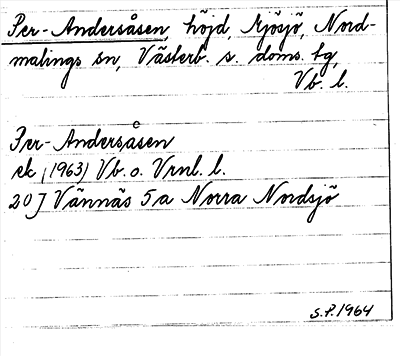 Per-Andersåsen, höjd, Mjösjö, Nord-
malings sn, Västerb. s. doms. tg,
Vb. l.
Per-Andersåsen
ek (1963) Vb. o. Vrnl. l.
20 J Vännäs 5a Norra Nordsjö
S.P. 1964